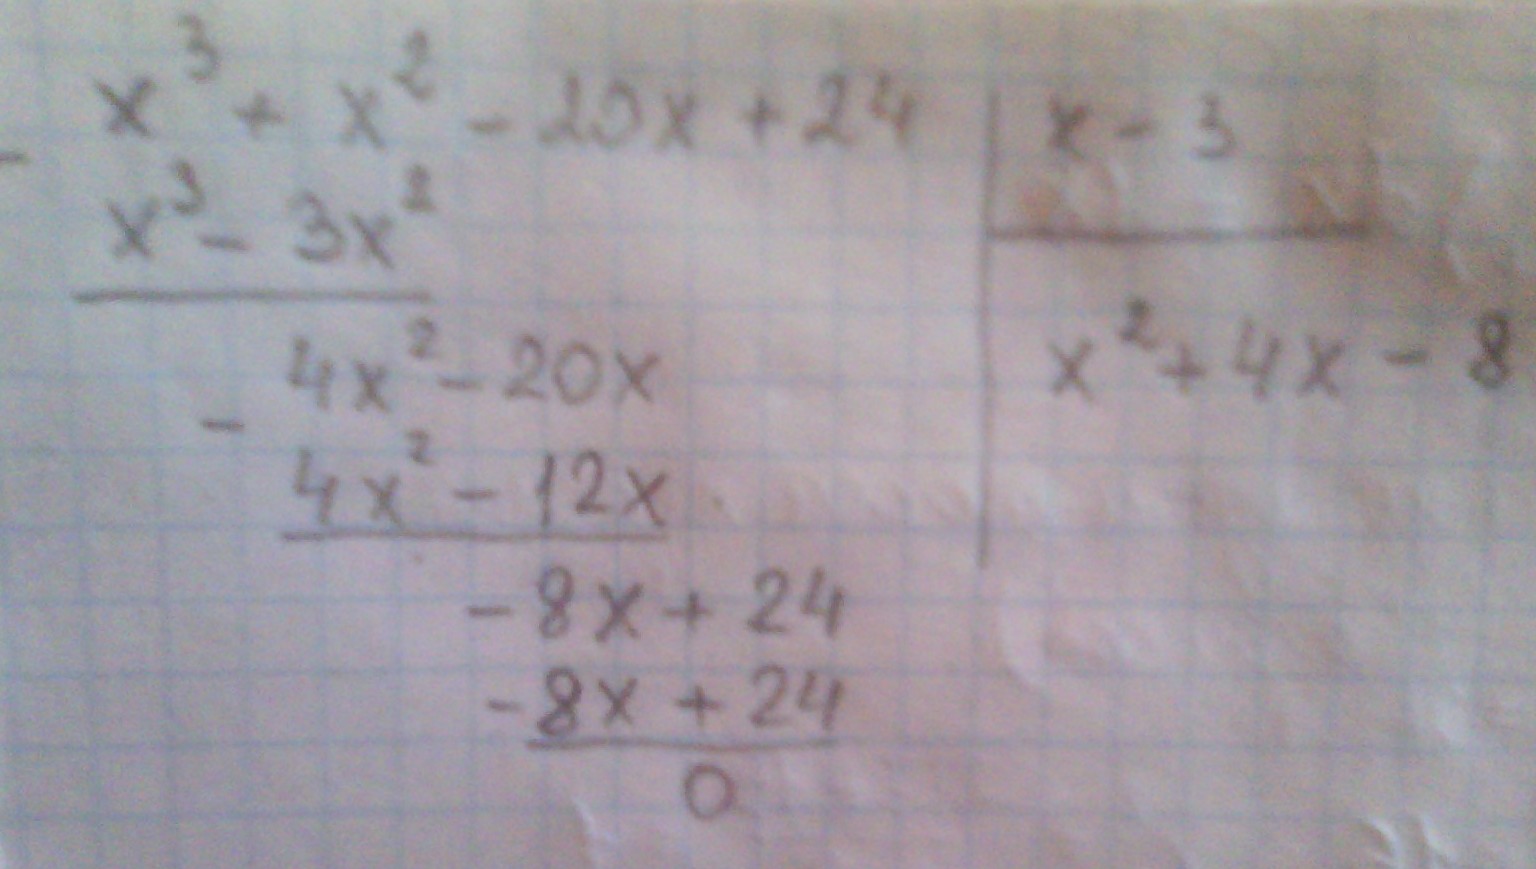 x³ + x² - 20x + 24 | x - 3
- x³ - 3x² | x² + 4x - 8
4x² - 20x
- 4x² - 12x
- 8x + 24
- 8x + 24
0